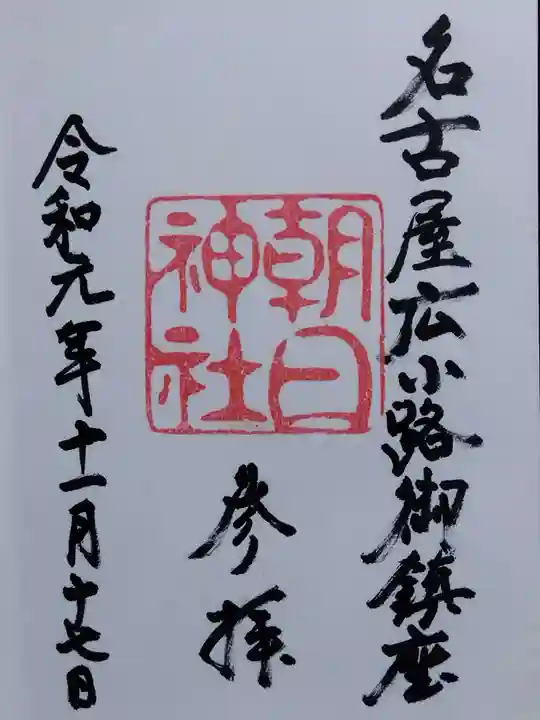 名古屋広小路御鎮座
朝日
神社
参拝
令和元年十一月十七日